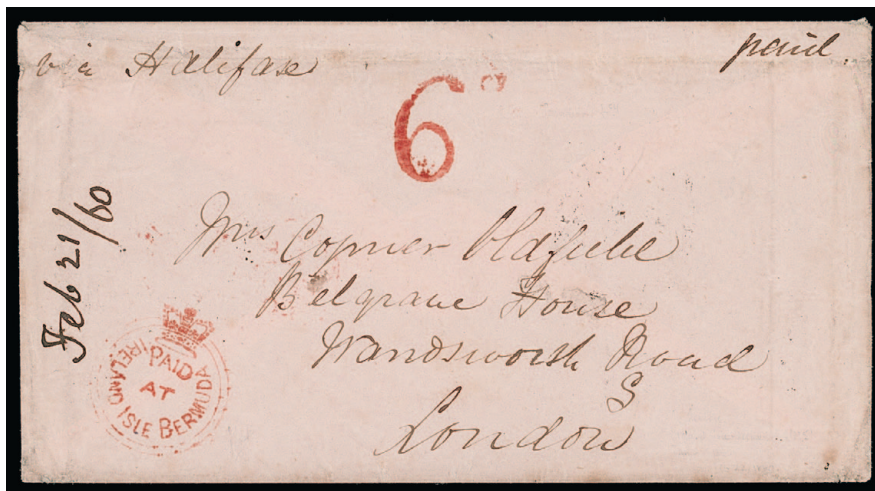 via Halifax
paid.
6d
Feb 21/60
Mrs Copner Oldfield
Belgrave House
Wandsworth Road
S
London
PAID
AT
IRELAND ISLE BERMUDA